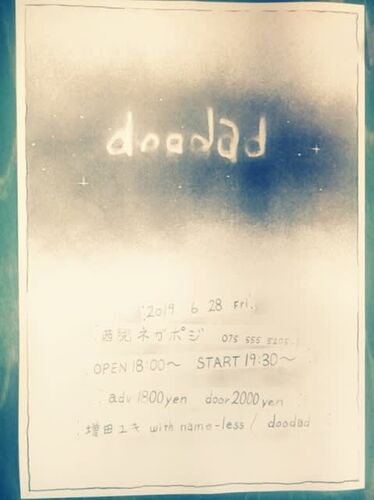 doodad
2019 6 28 Fri.
西院ネガポジ 075 555 5205
OPEN 18:00〜 START 19:30〜
adv 1800yen door 2000yen
増田ユキ with name-less / doodad